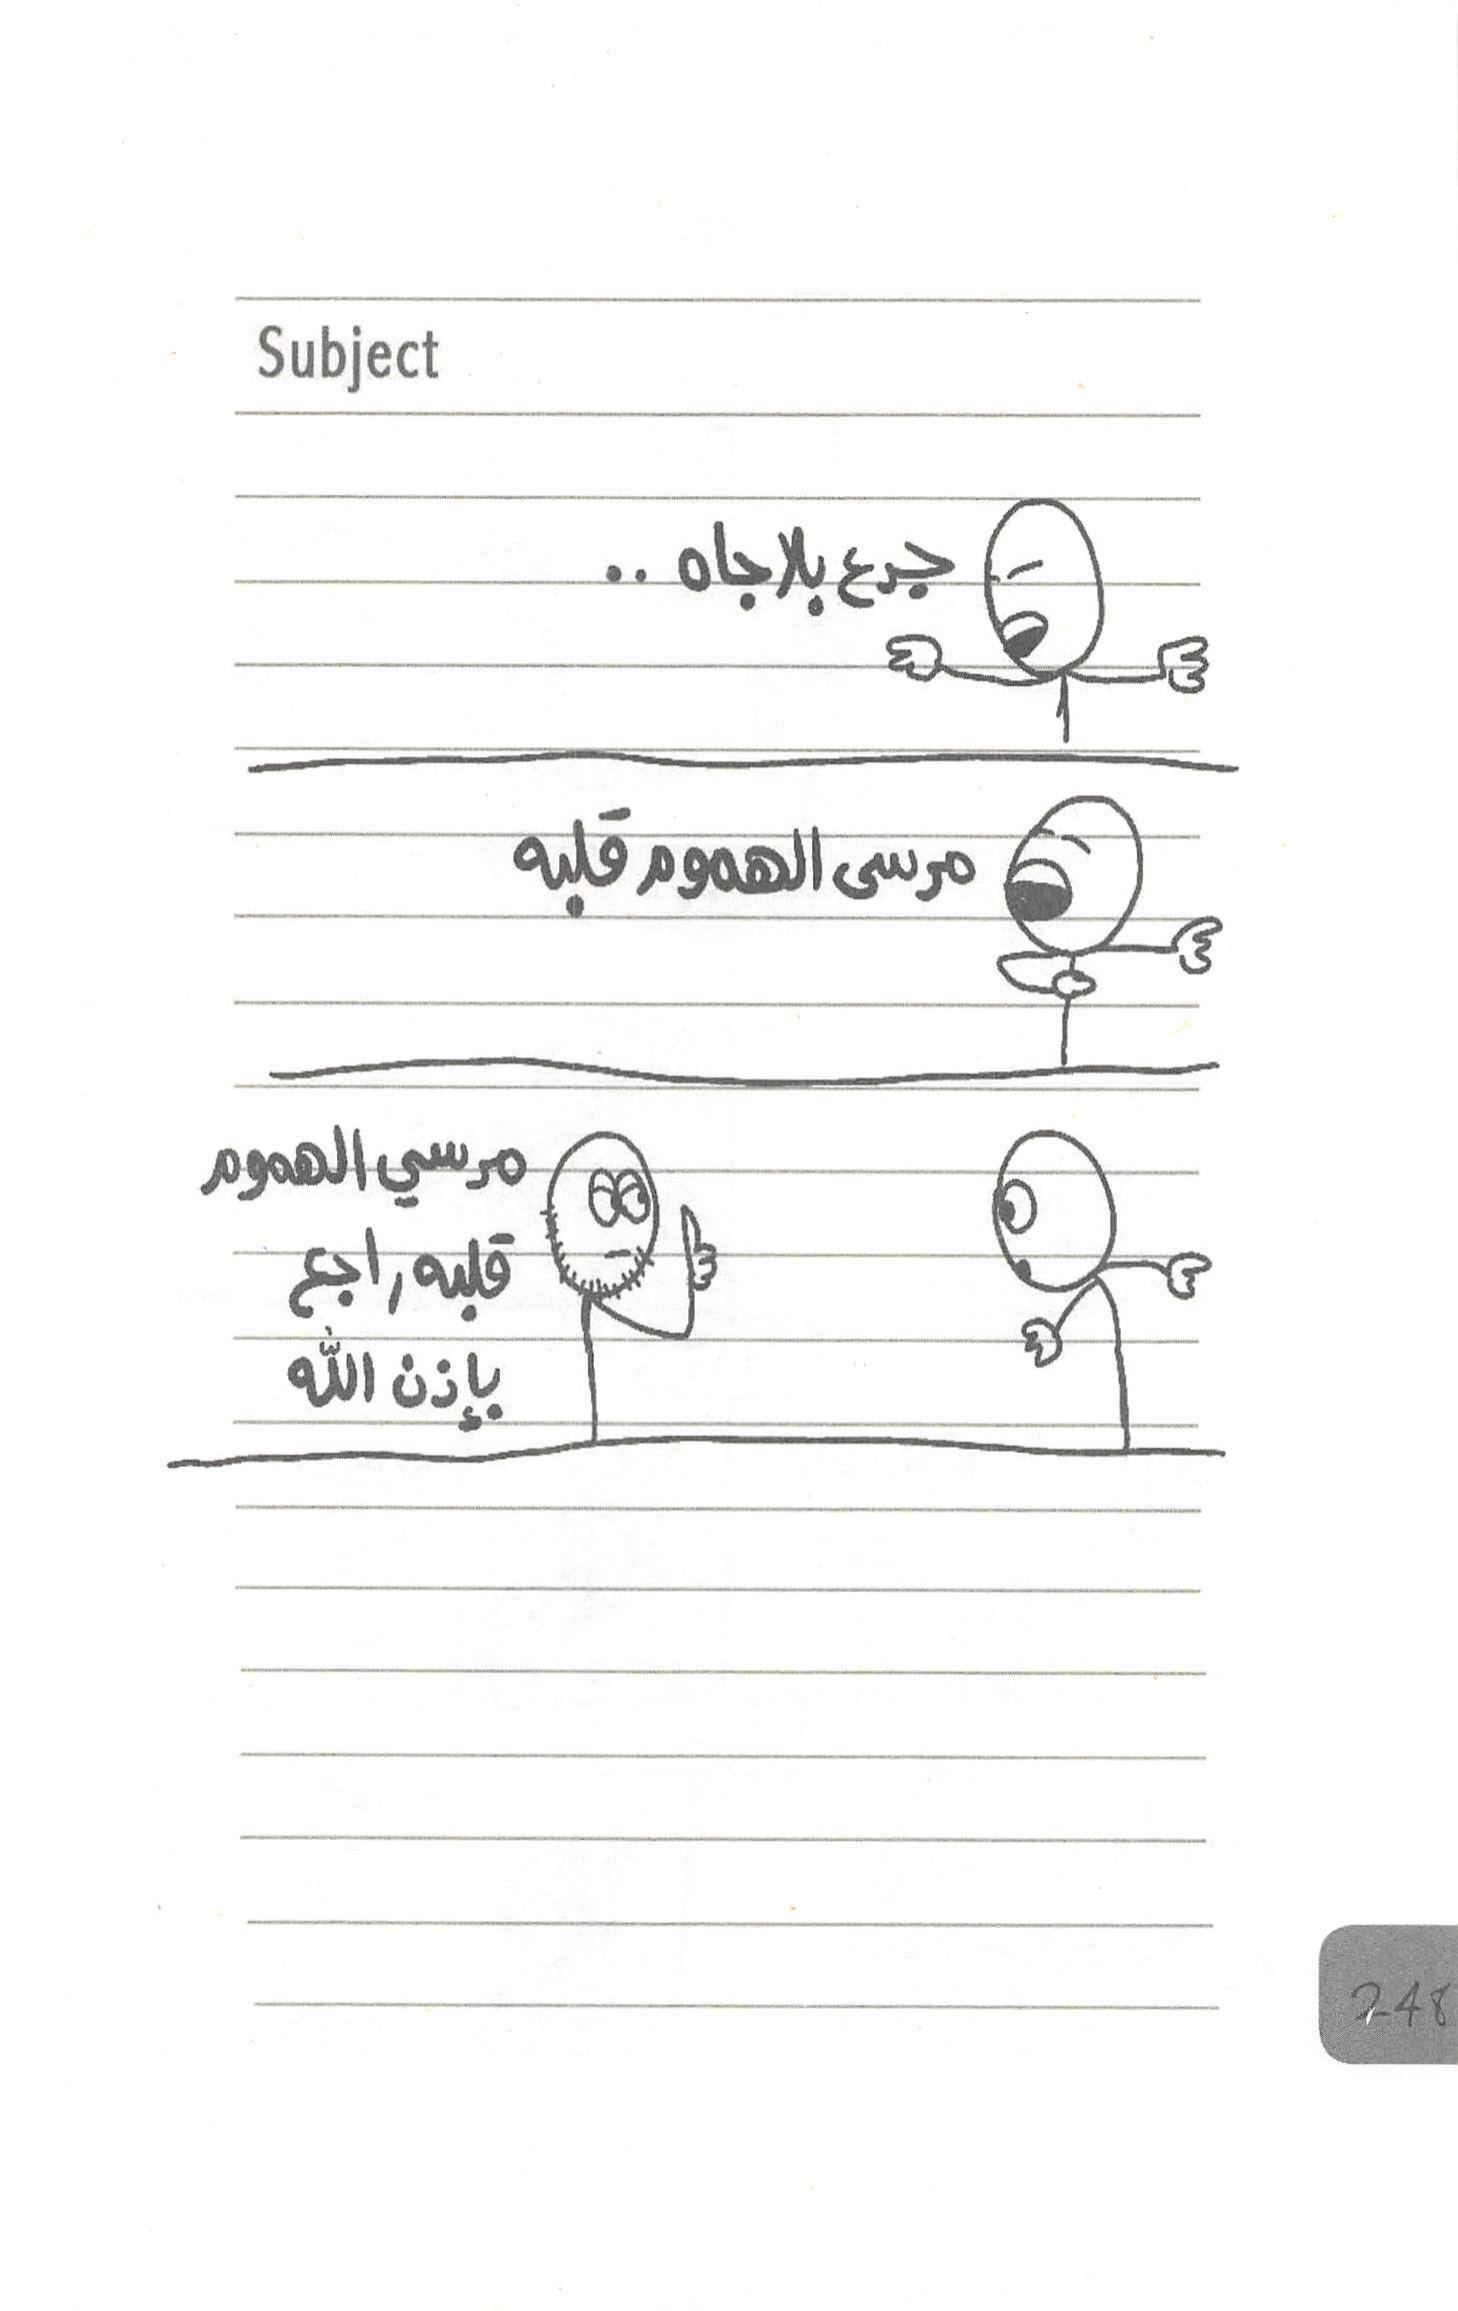 Subject
جدع بلا جاه ..
مرسى الهموم قلبه
مرسي الهموم
قلبه راجع
بإذن الله
248